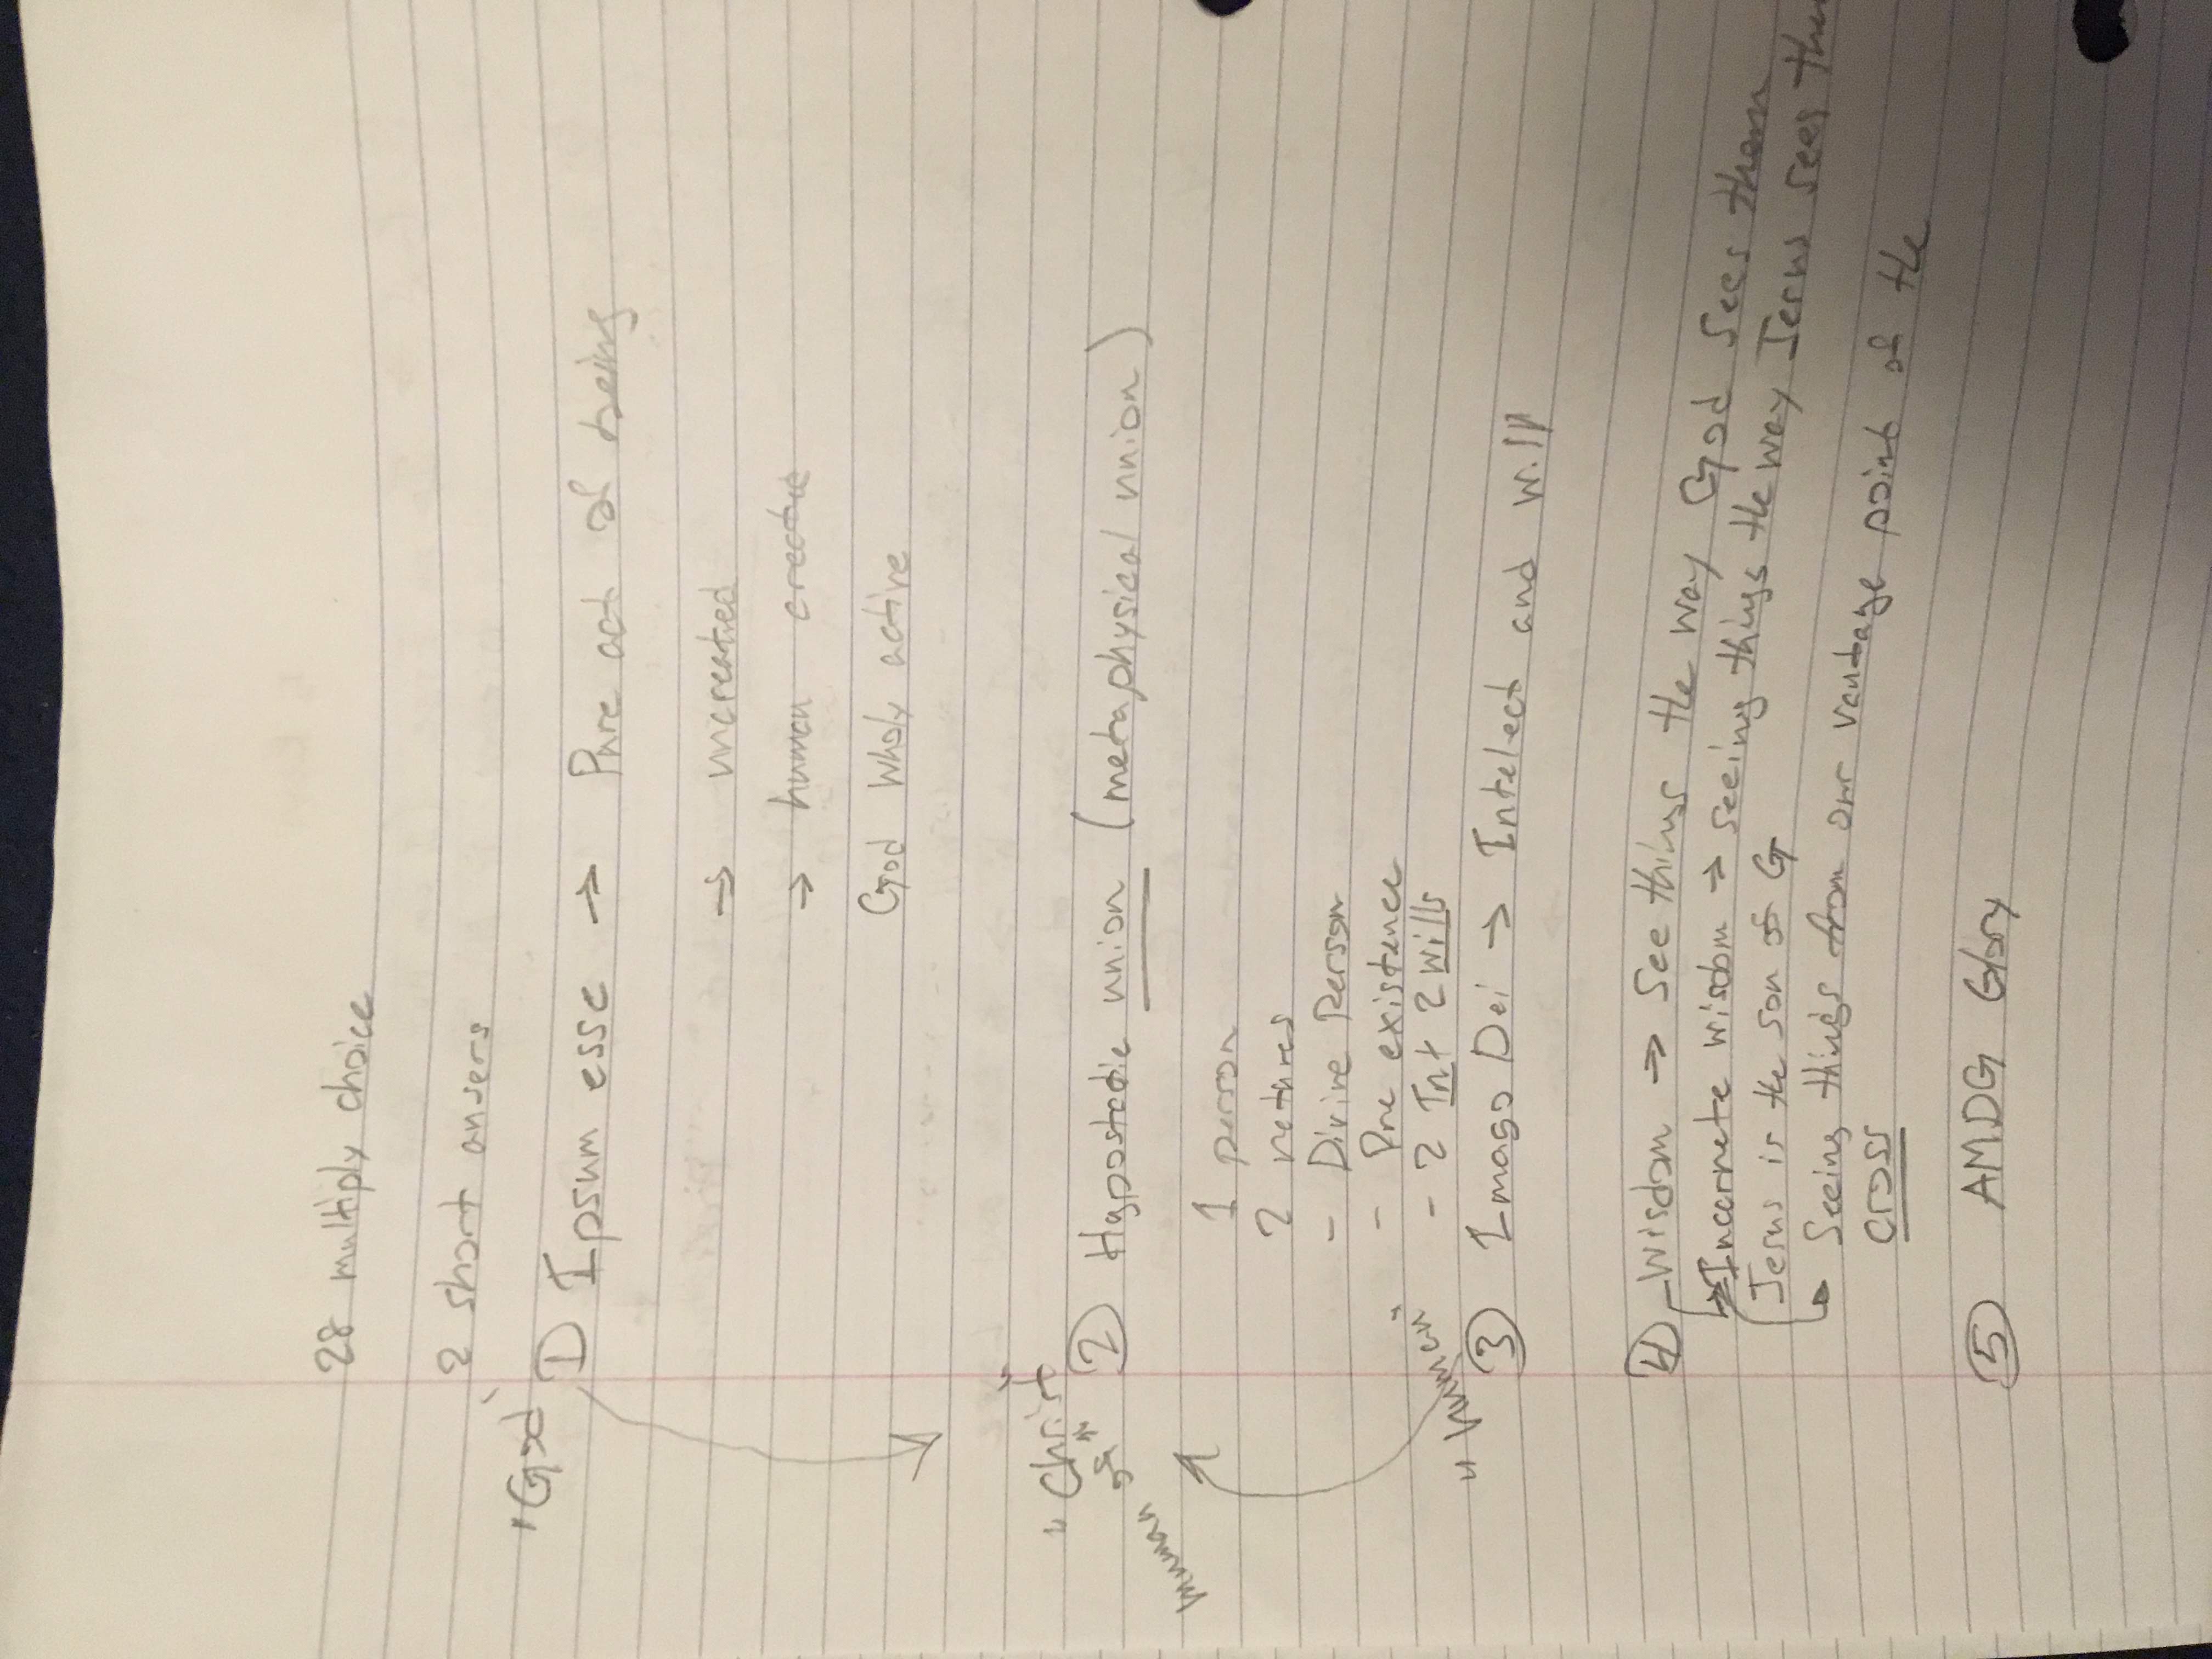 28 multiply choice
2 short ansers
"God"
① Ipsum esse → Pure act of being
→ uncreated
→ human creatue
God wholy active
"Christ"
② Hypostadic union (metaphysical union)
human
1 person
2 natures
- Divine Person
- Pre existence
- 2 Int 2 wills
"human"
③ Imago Dei → Intelect and will
④ -Wisdom → See things the way God sees them
→ Incarnate wisdom → seeing things the way Jesus sees
Jesus is the son of G
↳ Seeing things from our vantage point of the
cross
⑤ AMDG Glory